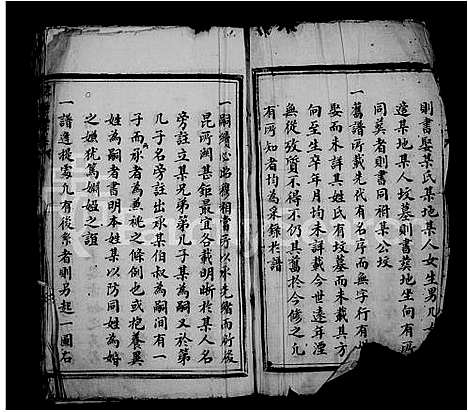 則書娶某氏某地某人女生男几女
造某地某人坟墓則書葬地坐向有所
同葬者則書同附某公坟
一舊譜所載先代有名序而無字行有
娶而未詳其姓氏有坟墓而未載其方
向至生卒年月均未詳載今世遠年湮
無從攷質不得不仍其舊於今修之几
有所知者均為采錄於譜
一嗣續必出摩相書所以承先緒而前後
昆所關甚鉅最宜各載明晰於某人名
旁註立某兄弟第几子某為嗣又於第
几子名旁註出承某伯叔為嗣間有一
子而承者為兼祧之條例也或抱養異
姓為嗣者書明本姓某以防同姓為婚
之嫌犹篤嫻婭之誼
一譜進提處凡有後系者則另起一圖右